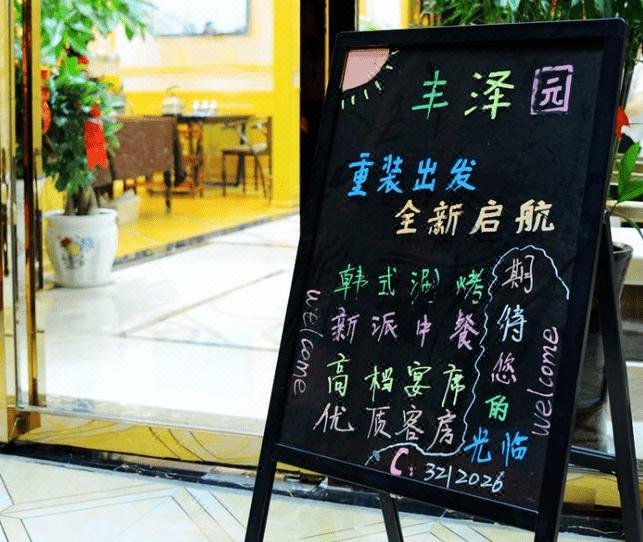 丰泽园
重装出发
全新启航
韩式涮烤
新派中餐
高档宴席
优顶客房
期待您的光临
welcome
welcome
C: 3212026